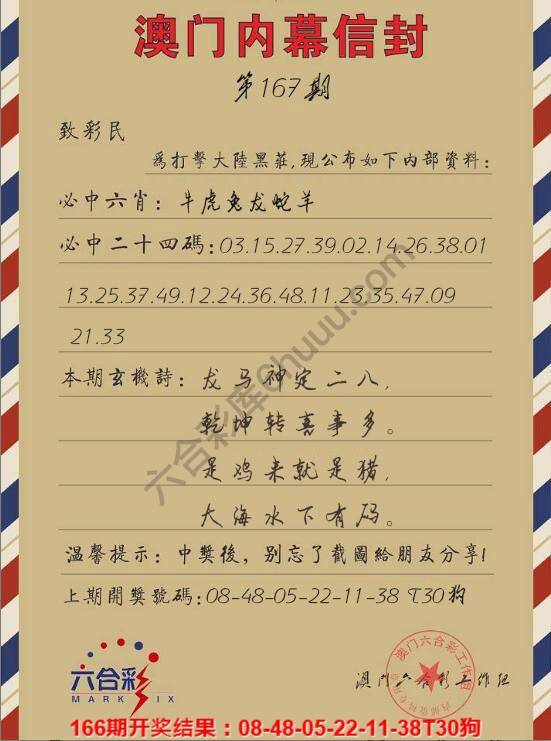 澳门内幕信封
第167期
致彩民
為打擊大陸黑莊,現公布如下内部資料:
必中六肖: 牛虎兔龙蛇羊
必中二十四碼:03.15.27.39.02.14.26.38.01
13.25.37.49.12.24.36.48.11.23.35.47.09
21.33
本期玄機詩: 龙马神定二八,
乾坤转喜事多。
是鸡来就是猪,
大海水下有码。
温馨提示: 中獎後, 别忘了截圖給朋友分享!
上期開獎號碼:08-48-05-22-11-38 T30狗
六合彩库@huuu.com
六合彩
MARK SIX
澳门六合彩工作组
澳门六合彩工作组
166期开奖结果:08-48-05-22-11-38T30狗